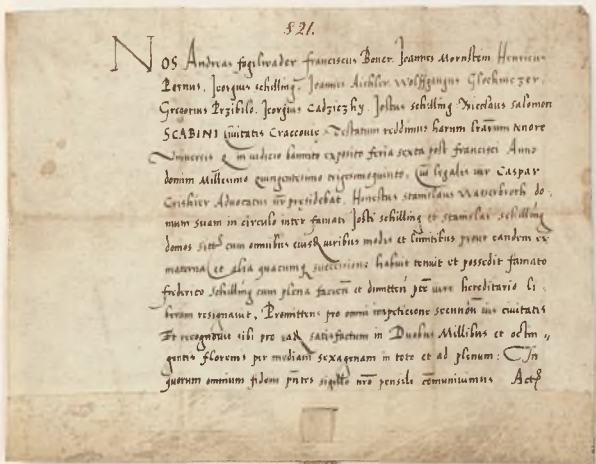 821.
Nos Andreas fogilwader franciscus Boner. Joannes Mornstein Henricus
Pernus. Jeorgius schilling. Joannes Aichler Wolffgangus Glochmczer.
Gregorius Przibilo. Jeorgius Cadziczky. Jostus schilling Nicolaus Salomon
SCABINI Civitatis Craccovie. Testatum reddimus harum lrarum tenore
Universis q in iudicio bannito exposito feria sexta post francisci Anno
domini Millesimo quingentesimo trigesimoquinto. Cui legalis vir Caspar
Crishier Advocatus nr presidebat. Honestus stanislaus Watzerbroth do.
mum suam in circulo inter famati Josti schilling et stanislai schilling
domos sitam cum omnibus eius iuribus modis et limitibus prout eandem ex
materna et alia quacumq successione habuit tenuit et possedit famato
frederico Schilling cum plena faciendi et dimittendi ptate iure hereditario li
berum resignavit. Promittens pro omni impeticione secundum ius civitatis
Et recognovit sibi pro satisfactum in Duobus Millibus et octin
gentis florenis per mediam sexagenam in toto et ad plenum: In
quorum omnium fidem pntes sigillo nro pensili communivimus Act